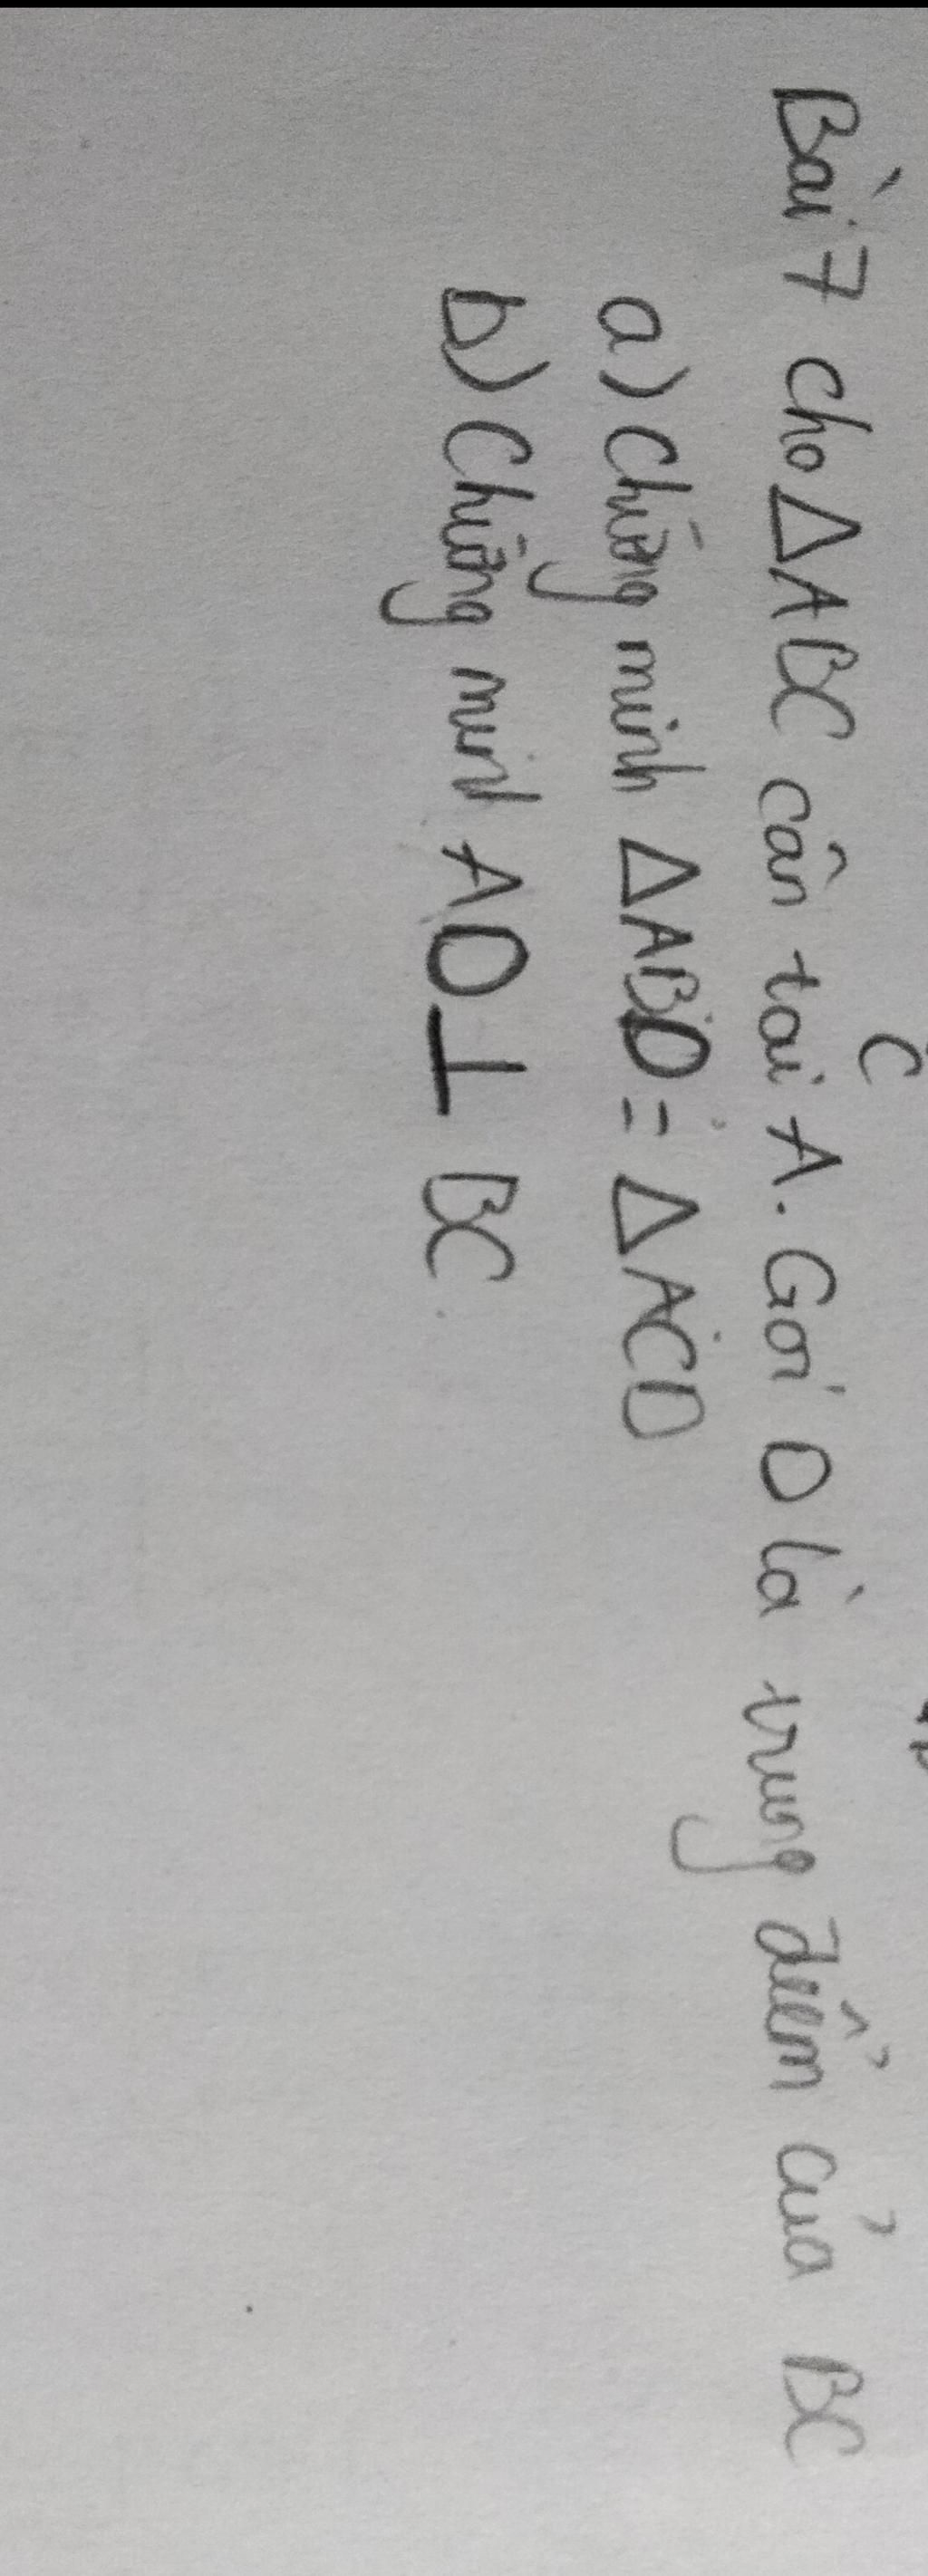 Bài 7 Cho △ABC cân tại A. Gọi D là trung điểm của BC
a) Chứng minh △ABD = △ACD
b) Chứng minh AD ⊥ BC